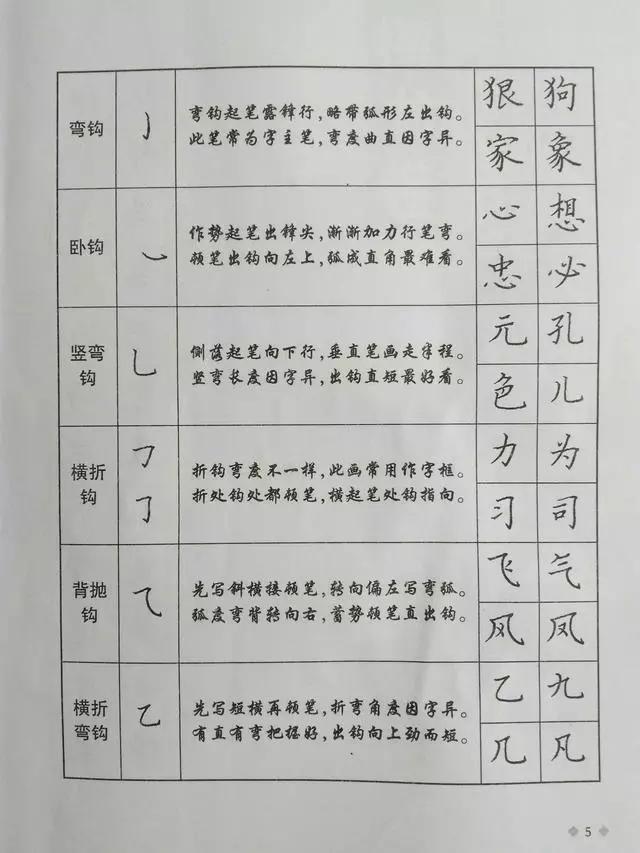 弯钩
㇁
弯钩起笔露锋行，略带弧形左出钩。
此笔常为字主笔，弯度曲直因字异。
狠 狗
家 象
卧钩
㇃
作势起笔出锋尖，渐渐加力行笔弯。
顿笔出钩向左上，弧成直角最难看。
心 想
忠 必
竖弯
钩
乚
侧落起笔向下行，垂直笔画走半程。
竖弯长度因字异，出钩直短最好看。
元 孔
色 儿
横折
钩
㇆
𠃌
折钩弯度不一样，此画常用作字框。
折处钩处都顿笔，横起笔处钩指向。
力 为
习 司
背抛
钩
⺄
先写斜横接顿笔，转向偏左写弯弧。
弧度弯背转向右，蓄势顿笔直出钩。
飞 气
风 凤
横折
弯钩
乙
先写短横再顿笔，折弯角度因字异。
有直有弯把握好，出钩向上劲而短。
乙 九
几 凡
5